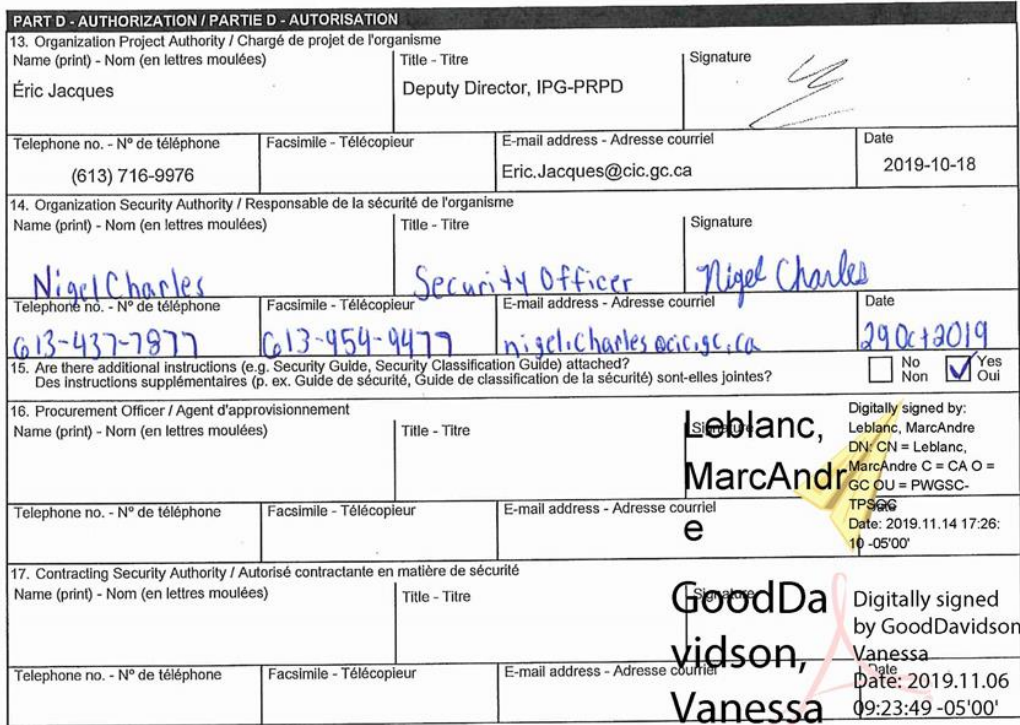 PART D - AUTHORIZATION / PARTIE D - AUTORISATION
13. Organization Project Authority / Chargé de projet de l'organisme
Name (print) - Nom (en lettres moulées)
Title - Titre
Signature
Éric Jacques
Deputy Director, IPG-PRPD
Telephone no. - Nº de téléphone
Facsimile - Télécopieur
E-mail address - Adresse courriel
Date
(613) 716-9976
Eric.Jacques@cic.gc.ca
2019-10-18
14. Organization Security Authority / Responsable de la sécurité de l'organisme
Name (print) - Nom (en lettres moulées)
Title - Titre
Signature
Nigel Charles
Security Officer
Nigel Charles
Telephone no. - Nº de téléphone
Facsimile - Télécopieur
E-mail address - Adresse courriel
Date
613-437-7877
613-954-9477
nigel.charles@cic.gc.ca
29 Oct 2019
15. Are there additional instructions (e.g. Security Guide, Security Classification Guide) attached?
Des instructions supplémentaires (p. ex. Guide de sécurité, Guide de classification de la sécurité) sont-elles jointes?
No
Non
Yes
Oui
16. Procurement Officer / Agent d'approvisionnement
Name (print) - Nom (en lettres moulées)
Title - Titre
Signature
Leblanc,
MarcAndr
e
Digitally signed by:
Leblanc, MarcAndre
DN: CN = Leblanc,
MarcAndre C = CA O =
GC OU = PWGSC-
TPSGC
Date: 2019.11.14 17:26:
10 -05'00'
Telephone no. - Nº de téléphone
Facsimile - Télécopieur
E-mail address - Adresse courriel
Date
17. Contracting Security Authority / Autorisé contractante en matière de sécurité
Name (print) - Nom (en lettres moulées)
Title - Titre
Signature
GoodDa
vidson,
Vanessa
Digitally signed
by GoodDavidson,
Vanessa
Date: 2019.11.06
09:23:49 -05'00'
Telephone no. - Nº de téléphone
Facsimile - Télécopieur
E-mail address - Adresse courriel
Date